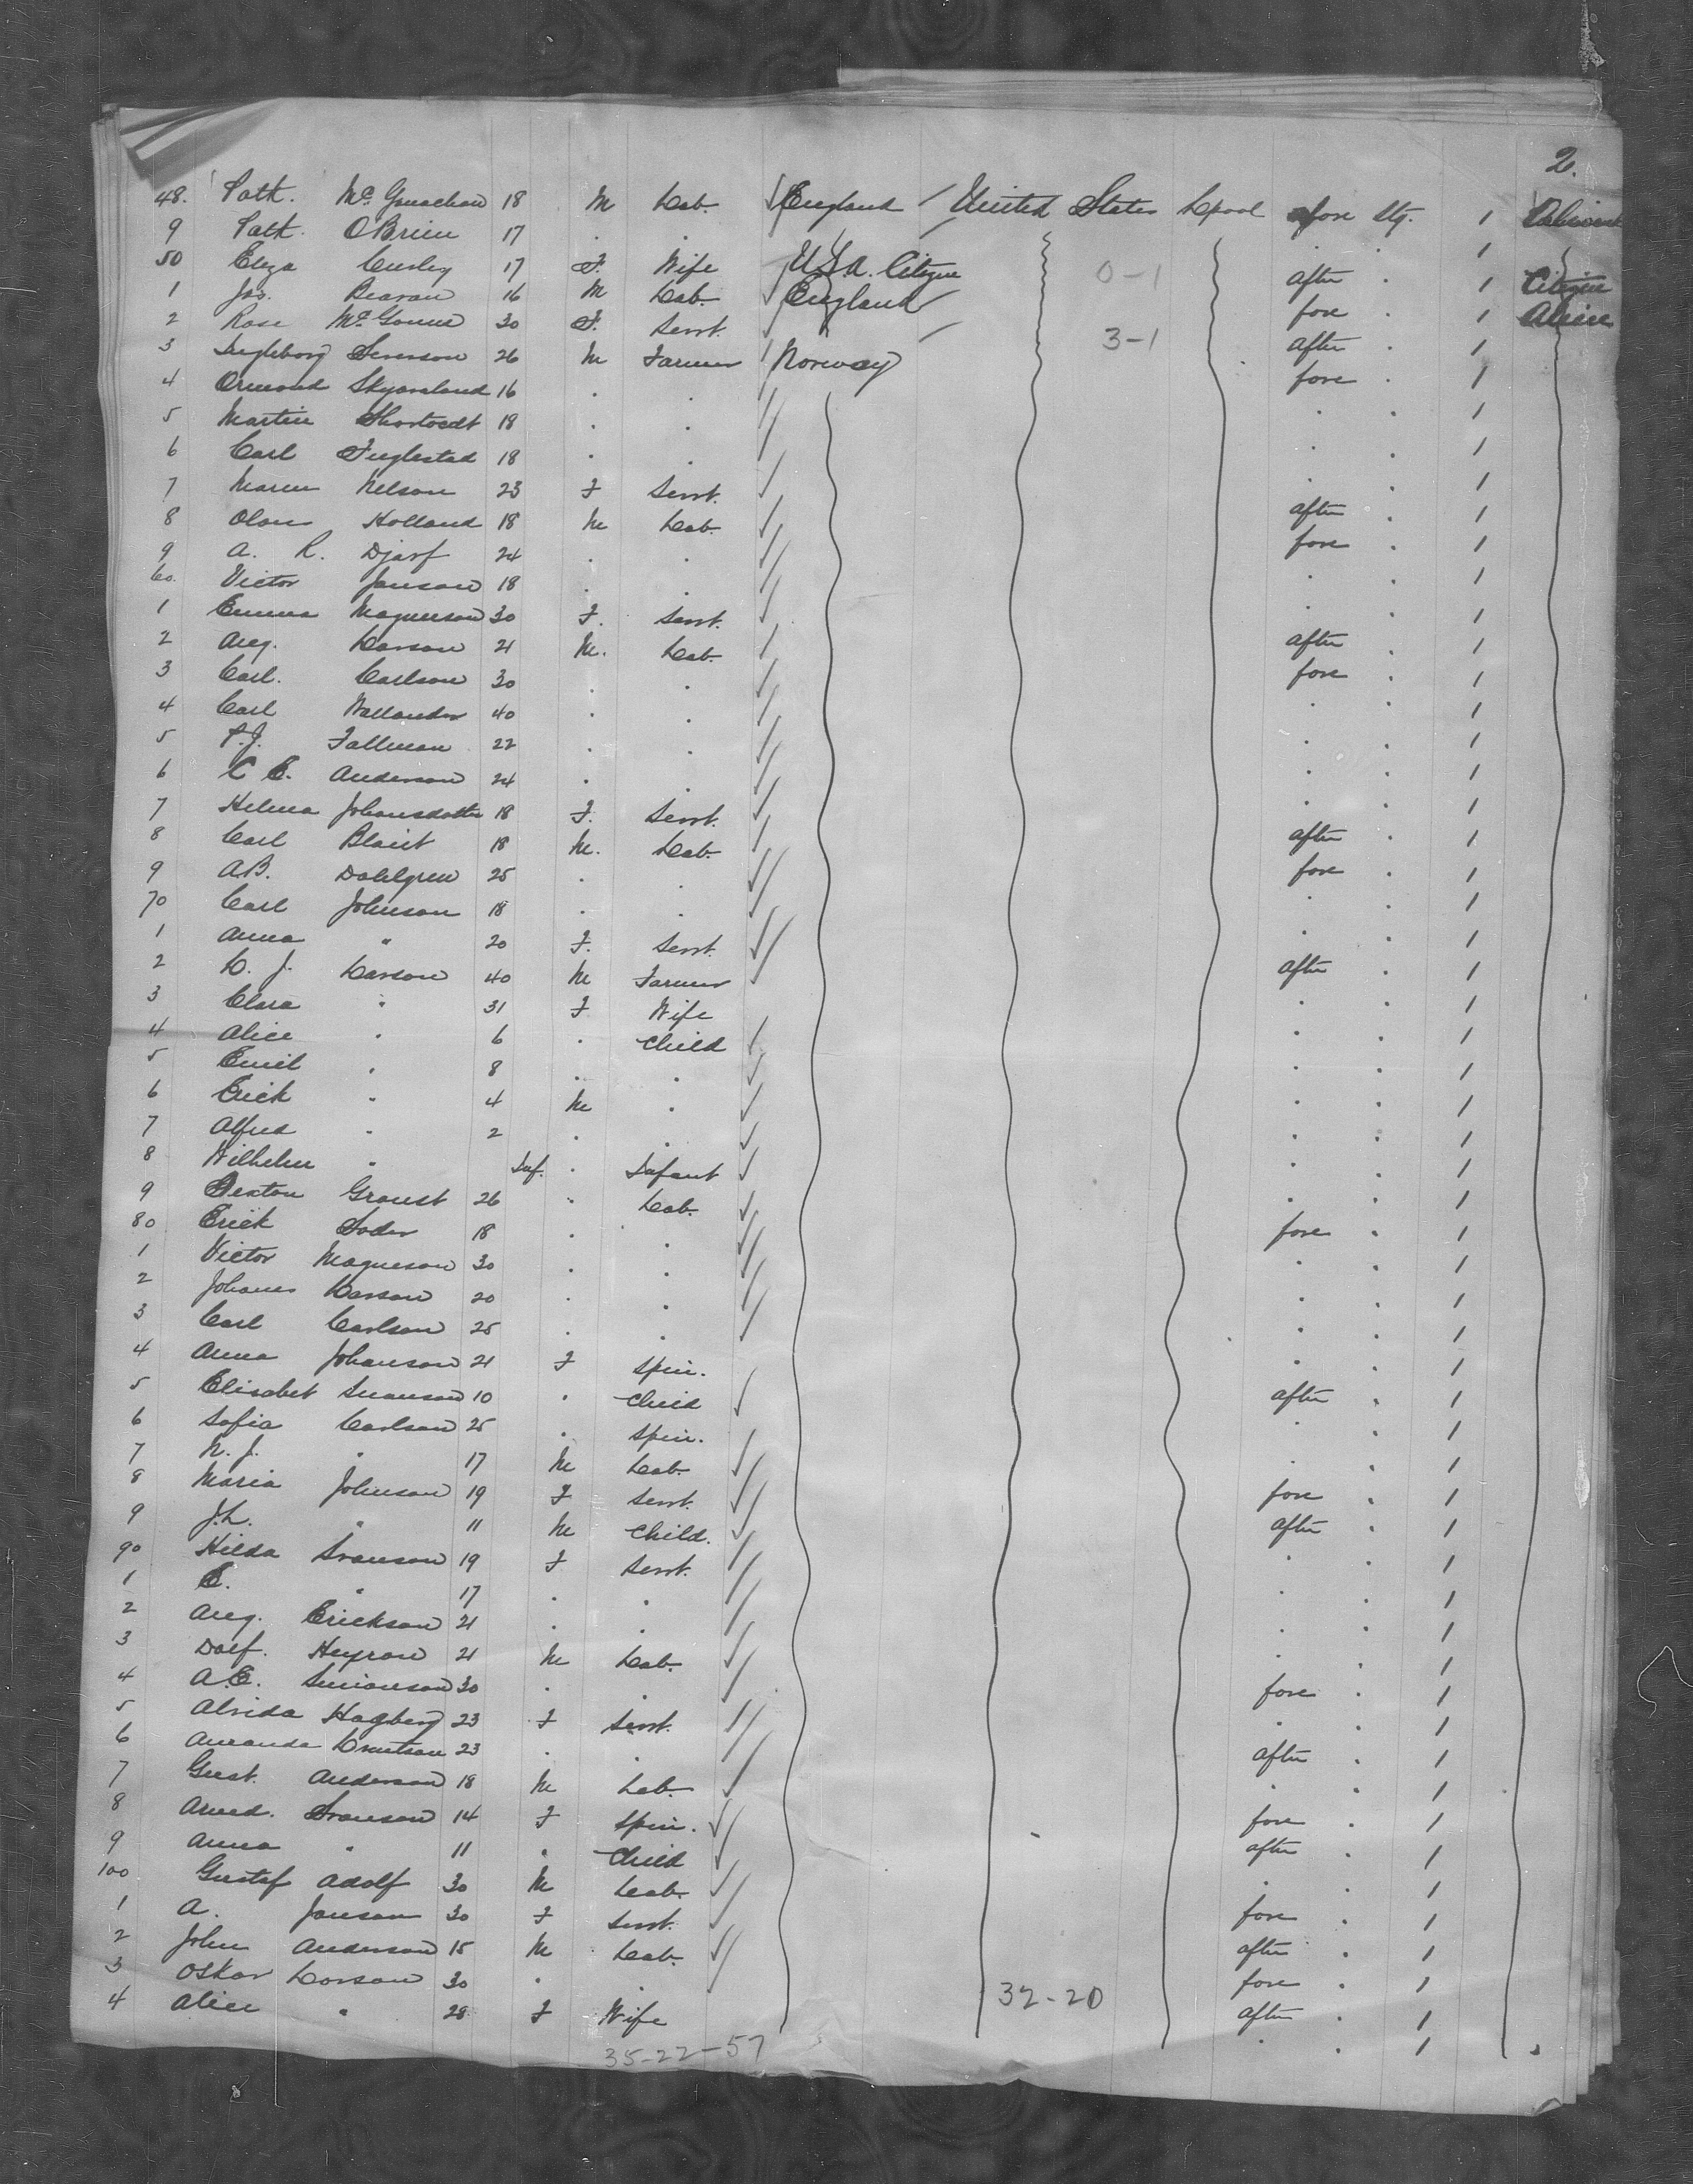 2.
48. Patk. McGonachan 18 M Lab. England United States Lpool fore Stg. 1
9 Patk O'Brien 17 . . . . 1
50 Eliza Curley 17 F. Wife U.S.A. Citizen 0-1 after . 1 Citizen
1 Jas. Beavan 16 M Lab. England fore . 1 Alien
2 Rose 30 F. Servt. 3-1 after . 1
3 Ingleborg Severson 26 M Farmer Norway fore . 1
4 Ormond 16 . . . . 1
5 Martin 18 . . . . 1
6 Carl Fuglestad 18 . . . . 1
7 Maren Nelson 23 F Servt. after . 1
8 Olaus Holland 18 M Lab. fore . 1
9 A. R. Djarf 24 . . . . 1
60. Victor Janson 18 . . . . 1
1 Emma Magnerson 30 F. Servt. after . 1
2 Aug. Larson 21 M. Lab. fore . 1
3 Carl. Carlson 30 . . . . 1
4 Carl Wallander 40 . . . . 1
5 P.J. Fallman 22 . . . . 1
6 C E. Anderson 24 . . . . 1
7 Helma Johansdotter 18 F. Servt. after . 1
8 Carl 18 M. Lab. fore . 1
9 A.B. Dahlgren 25 . . . . 1
70 Carl Johnson 18 . . . . 1
1 Anna " 20 F. Servt. after . 1
2 L. J. Larson 40 M Farmer . . 1
3 Clara " 31 F Wife . . 1
4 Alice " 6 . Child . . 1
5 Emil " 8 . . . . 1
6 Erick " 4 M . . . 1
7 Alfred " 2 . . . . 1
8 Wilhelm " Inf. . Infant . . 1
9 26 " Lab. fore . 1
80 Erick Soder 18 . . . . 1
1 Victor Magneson 30 . . . . 1
2 Johanes Larson 20 . . . . 1
3 Carl Carlson 25 . . . . 1
4 Anna Johanson 21 F Spin. after . 1
5 Elisabet Swanson 10 . Child . . 1
6 Sofia Carlson 25 . Spin. . . 1
7 N. J. " 17 M Lab. fore . 1
8 Maria Johnson 19 F Servt. after . 1
9 J.L. " 11 M Child. . . 1
90 Hilda Svanson 19 F Servt. . . 1
1 E. " 17 . . . . 1
2 Aug. Erickson 21 . . . . 1
3 Dolf. 21 M Lab. fore . 1
4 A.E. Simonson 30 . . . . 1
5 Alvida Hagberg 23 F Servt. after . 1
6 Amanda Knutson 23 . . . . 1
7 Gust. Anderson 18 M Lab. fore . 1
8 Amed. Svanson 14 F Spin. after . 1
9 Anna " 11 . Child . . 1
100 Gustaf Adolf 30 M Lab. fore . 1
1 A. Janson 30 F Servt. after . 1
2 John Anderson 15 M Lab. fore . 1
3 Oskar Larson 30 . . 32-20 after . 1
4 Alice " 28 F Wife . . 1
35-22-57